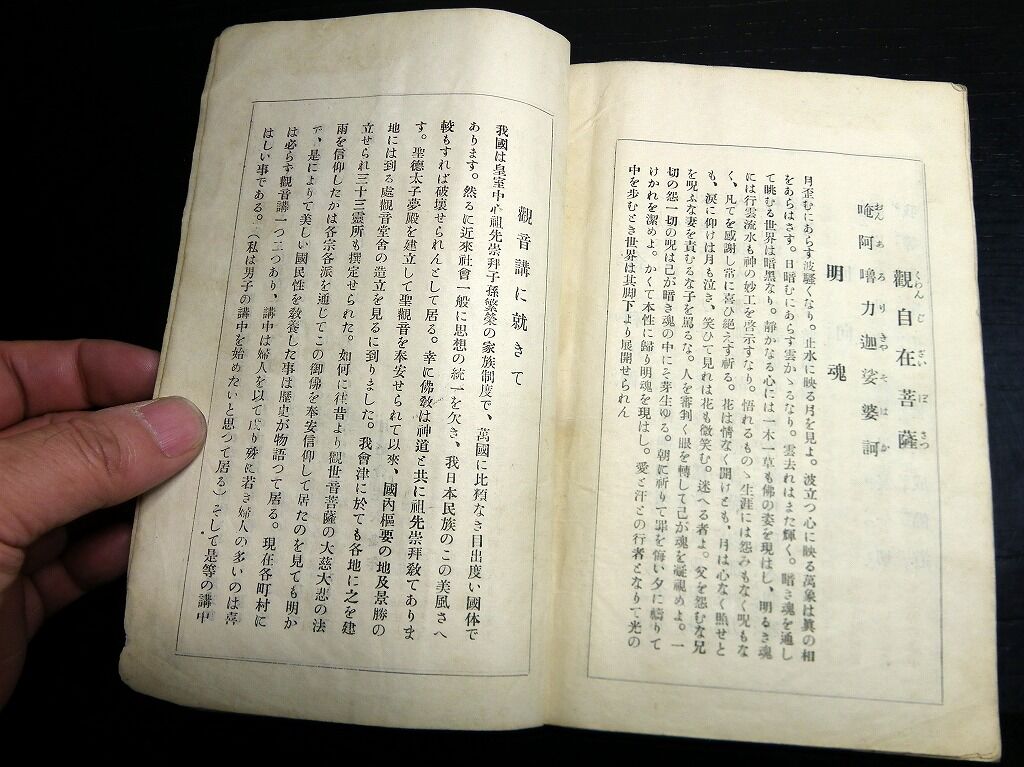 觀自在菩薩
くわんじざいぼさつ
唵阿嚕力迦娑婆訶
おんあろりきやそはか
明魂
月歪むにあらす波騷くなり。止水に映る月を見よ。波立つ心に映る萬象は眞の相
をあらはさす。日暗むにあらす雲かゝるなり。雲去れはまた輝く。暗き魂を通し
て眺むる世界は暗黑なり。靜かなる心には一木一草も佛の姿を現はし、明るき魂
には行雲流水も神の妙工を啓示すなり。悟れるものゝ生涯には怨みもなく呪もな
く、凡てを感謝し常に喜ひ絶えす祈る。花は情なく開けとも、月は心なく照せと
も、淚に仰けは月も泣き、笑ひて見れは花も微笑む。迷へる者よ。父を怨むな兄
を呪ふな妻を責むるな子を罵るな。人を審判く眼を轉して己が魂を凝視めよ。一
切の怨一切の呪は己が暗き魂の中にそ芽生ゆる。朝に祈りて罪を悔い夕に禱りて
けかれを潔めよ。かくて本性に歸り明魂を現はし。愛と汗との行者となりて光の
中を歩むとき世界は其脚下より展開せられん
觀音講に就きて
我國は皇室中心祖先崇拜子孫繁榮の家族制度で、萬國に比類なき目出度い國体で
あります。然るに近來社會一般に思想の統一を欠き、我日本民族のこの美風さへ
較もすれば破壞せられんとして居る。幸に佛敎は神道と共に祖先崇拜敎てありま
す。聖德太子夢殿を建立して聖觀音を奉安せられて以來、國內樞要の地及景勝の
地には到る處觀音堂舍の造立を見るに到りました。我會津に於ても各地に之を建
立せられ三十三靈所も撰定せられた。如何に往昔より觀世音菩薩の大慈大悲の法
雨を信仰したかは各宗各派を通じてこの御佛を奉安信仰して居たのを見ても明か
で、是によりて美しい國民性を敎養した事は歷史が物語つて居る。現在各町村に
は必らず觀音講一つ二つあり、講中は婦人を以て成り殊に若き婦人の多いのは喜
はしい事である。(私は男子の講中を始めたいと思つて居る)そして是等の講中